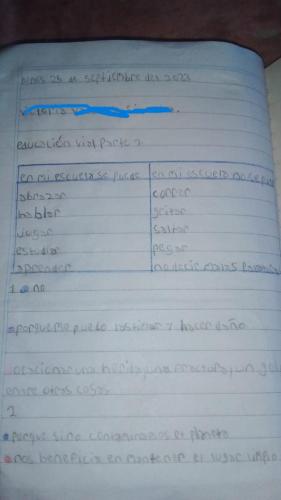 lunes 25 de septiembre del 2023
educación vial parte 2
en mi escuela se puede | en mi escuela no se puede
abrazar | correr
hablar | gritar
jugar | saltar
estudiar | pegar
aprender | no decir malas
1 no
porque me puedo lastimar y hacer daño
ocacionar una herida, una fractura, un
entre otras cosas
2
porque sino contaminamos el planeta
nos beneficia en mantener el lugar limpio